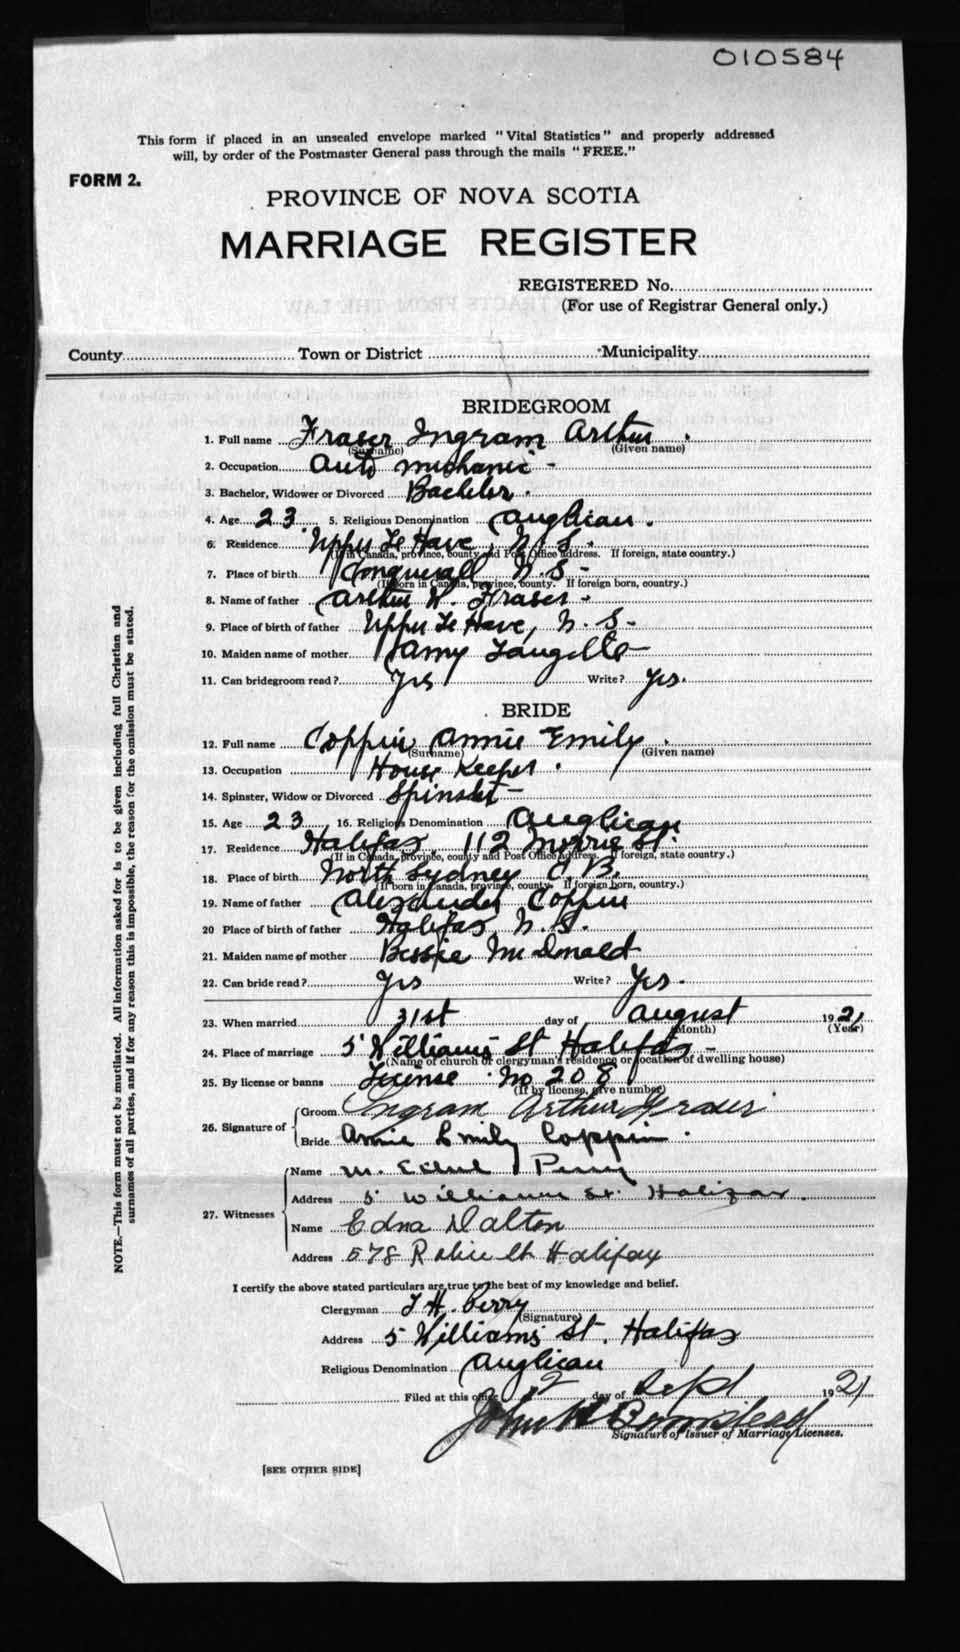 010584
This form if placed in an unsealed envelope marked "Vital Statistics" and properly addressed
will, by order of the Postmaster General pass through the mails "FREE."
FORM 2.
PROVINCE OF NOVA SCOTIA
MARRIAGE REGISTER
REGISTERED No.
(For use of Registrar General only.)
County Town or District Municipality
BRIDEGROOM
1. Full name Fraser Ingram Arthur
(Surname) (Given name)
2. Occupation Auto mechanic
3. Bachelor, Widower or Divorced Bachelor.
4. Age 23. 5. Religious Denomination Anglican.
6. Residence Upper La Have, N.S.
(If in Canada, province, county and Post Office address. If foreign, state country.)
7. Place of birth Conquerall N.S.
(If born in Canada, province, county. If foreign born, country.)
8. Name of father Arthur W. Fraser
9. Place of birth of father Upper La Have, N.S.
10. Maiden name of mother Amy Langille
11. Can bridegroom read? Yes Write? Yes.
BRIDE
12. Full name Coppin Annie Emily
(Surname) (Given name)
13. Occupation House Keeper
14. Spinster, Widow or Divorced Spinster
15. Age 23 16. Religious Denomination Anglican
17. Residence Halifax, 112 Morris St.
(If in Canada, province, county and Post Office address. If foreign, state country.)
18. Place of birth North Sydney C.B.
(If born in Canada, province, county. If foreign born, country.)
19. Name of father Alexander Coppin
20 Place of birth of father Halifax, N.S.
21. Maiden name of mother Bessie McDonald
22. Can bride read? Yes Write? Yes.
23. When married 31st day of August 1921
(Month) (Year)
24. Place of marriage 5 Williams St Halifax
(Name of church or clergyman's residence or location of dwelling house)
25. By license or banns License No 208
(If by license, give number)
26. Signature of
Groom Ingram Arthur Fraser
Bride Annie Emily Coppin.
27. Witnesses
Name M.
Address 5 Williams St. Halifax.
Name Edna Dalton
Address 578 Robie St Halifax
I certify the above stated particulars are true to the best of my knowledge and belief.
Clergyman T.H. Perry
(Signature)
Address 5 Williams St. Halifax
Religious Denomination Anglican
Filed at this office 2 day of Sept 1921
John H
Signature of Issuer of Marriage Licenses.
[SEE OTHER SIDE]
NOTE.—This form must not be mutilated. All information asked for is to be given including full Christian and
surnames of all parties, and if for any reason this is impossible, the reason for the omission must be stated.